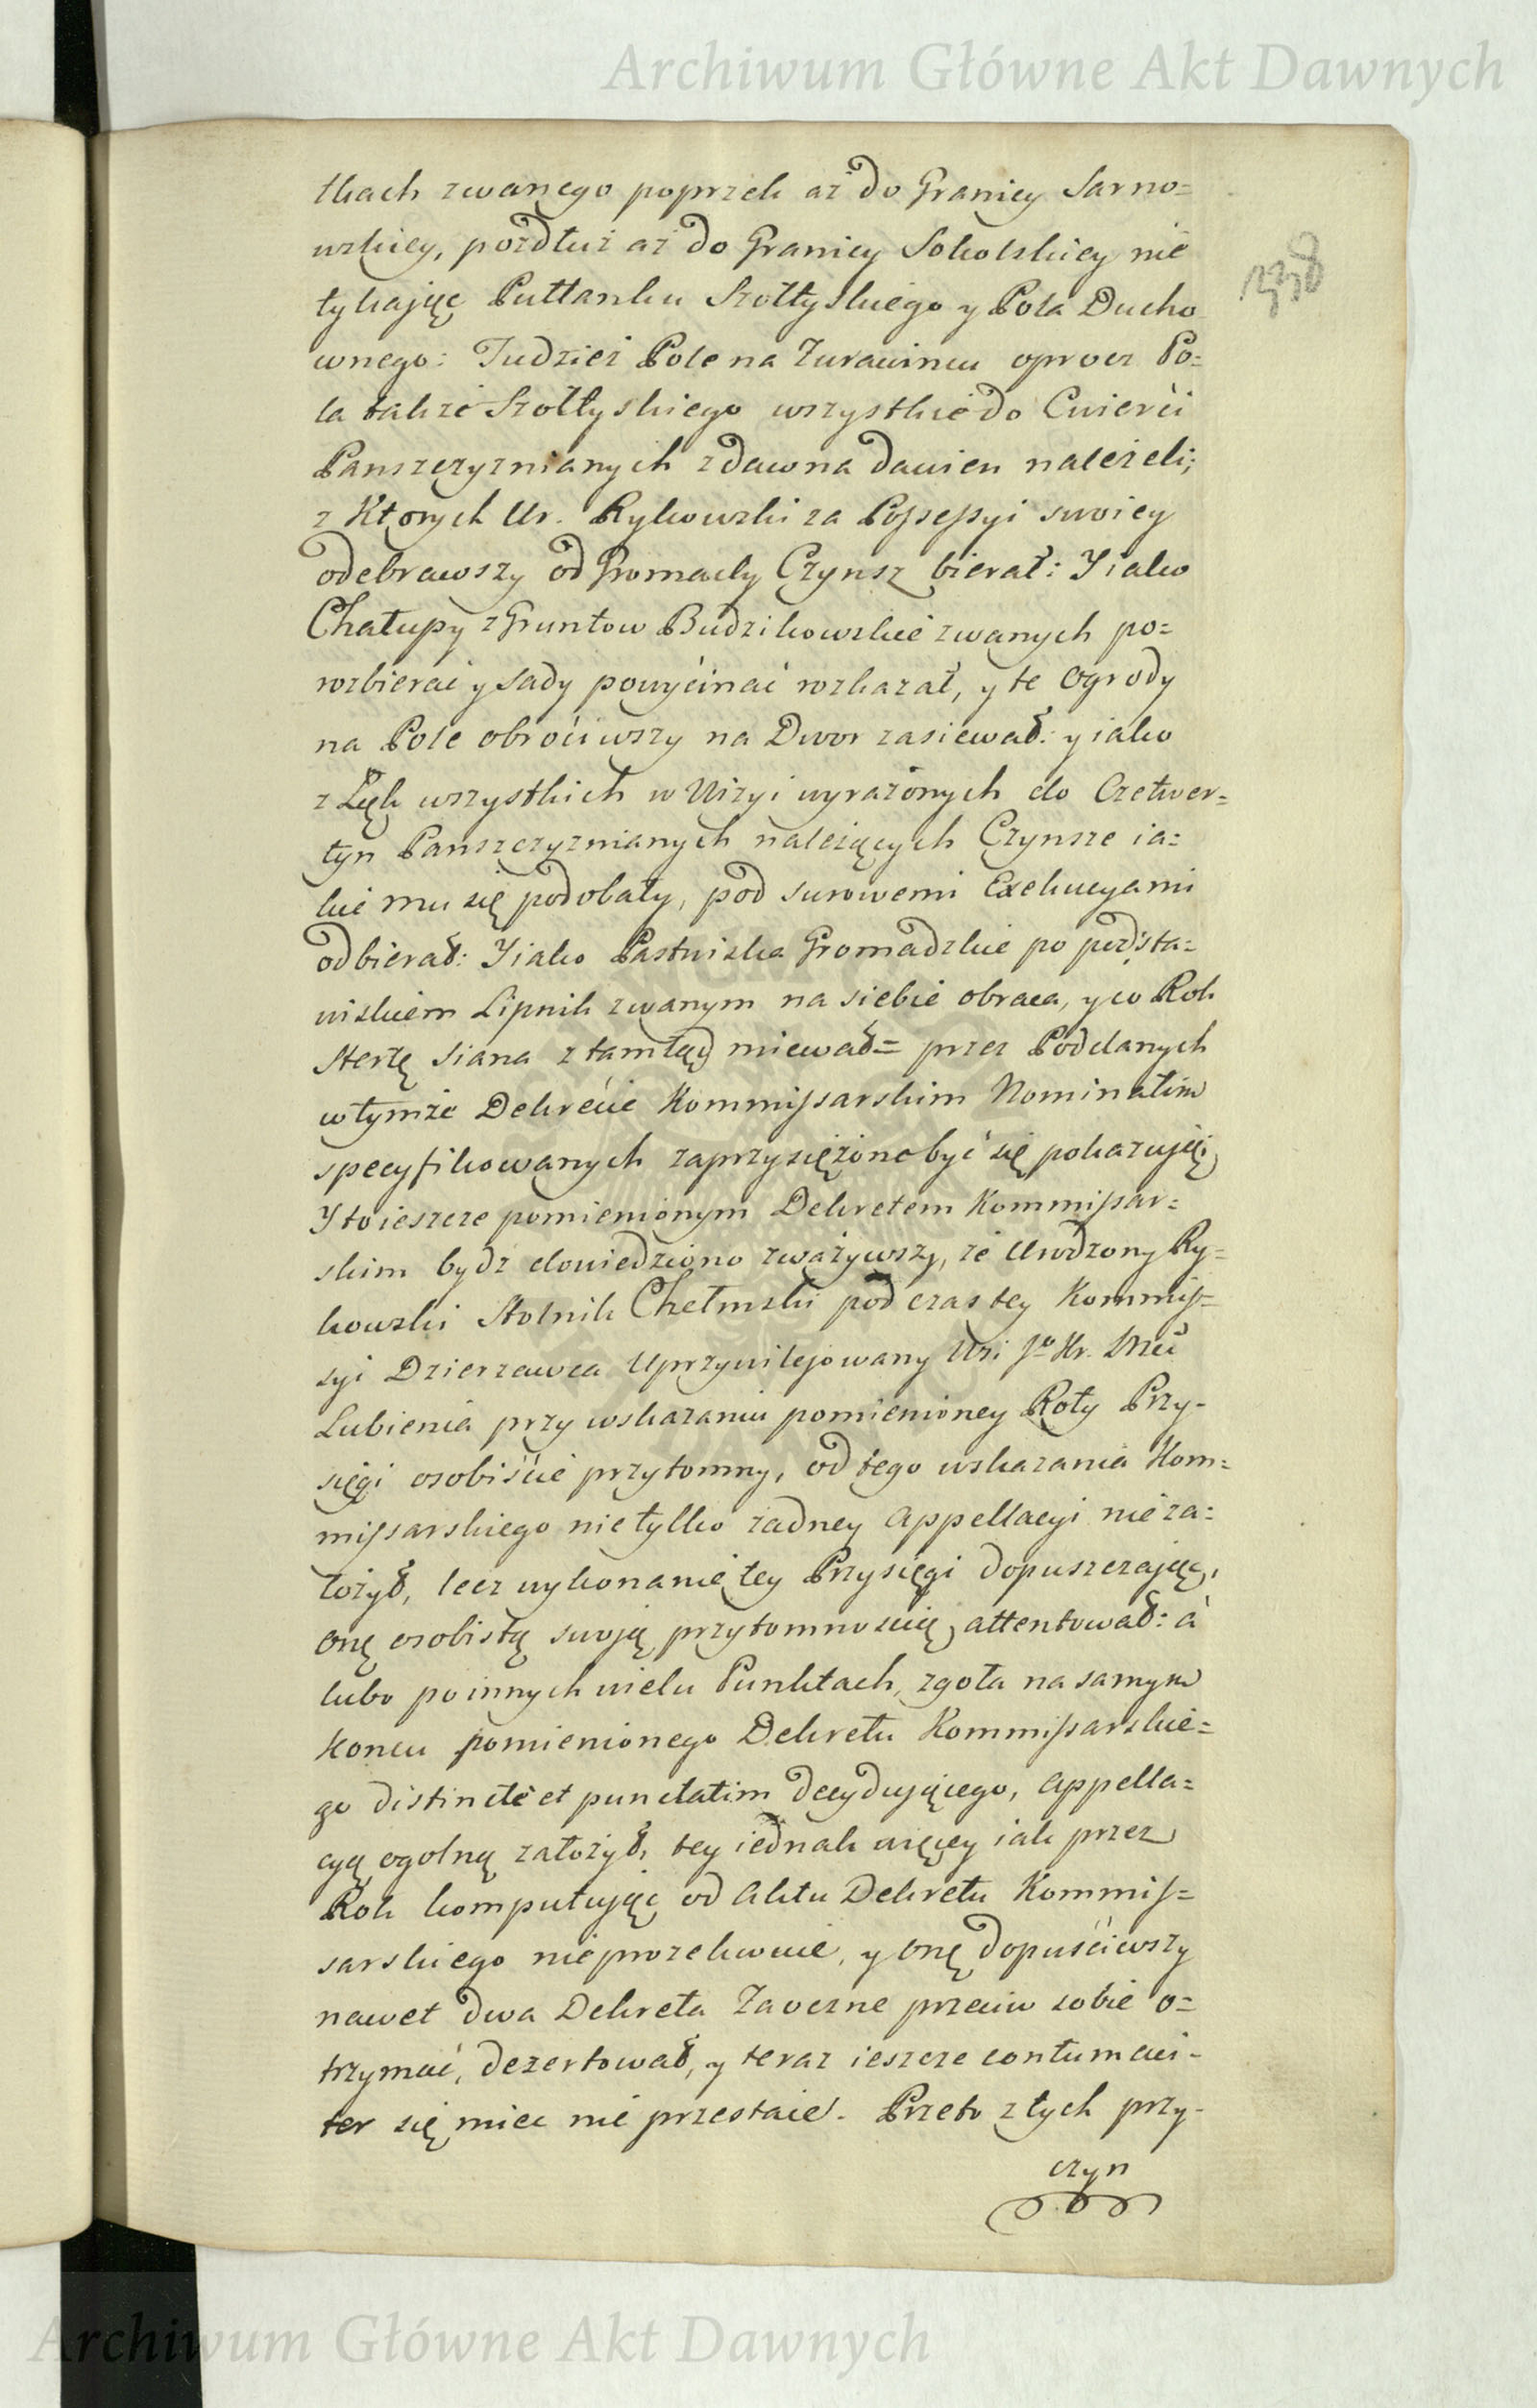 Archiwum Główne Akt Dawnych
tkach zwanego poprzek aż do Granicy Sarno=
wskiey, pozdłuż aż do Granicy Sokolskiey nie
tykaiąc Pułłanku Szołtyskiego y Pola Ducho
wnego: Tudzież Pole na Żurawincu oprocz Po=
la także Szołtyskiego wszystkie do Cwierći
Panszczyznianych zdawna dawien należeli;
z Ktorych Ur. Rykowski za Possessyi swoiey
odebrawszy od Gromady Czynsz bierał: Y iako
Chałupy z Gruntow Budzikowskie zwanych po=
rozbierać y sady powyćinać rozkazał, y te Ogrody
na Pole obroćiwszy na Dwor zasiewał: y iako
z Łąk wszystkich w Wizyi wyrażonych do Czetwer=
tyn Panszczyznianych należących Czynsze ia=
kie mu się podobały, pod surowemi Exekucyami
odbierał: Y iako Pastwiska Gromadzkie po pod sta=
wiskiem Lipnik zwanym na siebie obraca, y co Rok
Stertę Siana ztamtąd miewał= przez Poddanych
w tymże Dekrećie Kommissarskim Nominatim
specyfikowanych zaprzysiężono być się pokazuiąc;
Y to ieszcze pomienionym Dekretem Kommissar=
skim bydz dowiedziono zważywszy, że Urodzony Ry=
kowski Stolnik Chełmski pod czas tey Kommis=
syi Dzierzawca Uprzywilejowany Wsi Jo Kr. Mći
Lubienia przy wskazaniu pomienioney Roty Przy-
sięgi osobiśćie przytomny, od tego wskazania Kom=
missarskiego nie tylko żadney Appellacyi nie za=
łożył, lecz wykonanie tey Przysięgi dopuszczaiąc,
onę osobistą swoią przytomnoscią attentował: à
lubo po innych wielu Punktach, zgoła na samym
Koncu pomienionego Dekretu Kommissarskie=
go distinctè et punctatim decydującego, Appella=
cyą ogolną założył, tey iednak więcey iak przez
Rok komputuiąc od Aktu Dekretu Kommis=
sarskiego nieprozekwuie, y onę dopuśćiwszy
nawet dwa Dekreta Zaoczne przeciw sobie o=
trzymać, dezertował, y teraz ieszcze contumaci-
ter się miec nie przestaie. Przeto z tych przy-
czyn
Archiwum Główne Akt Dawnych